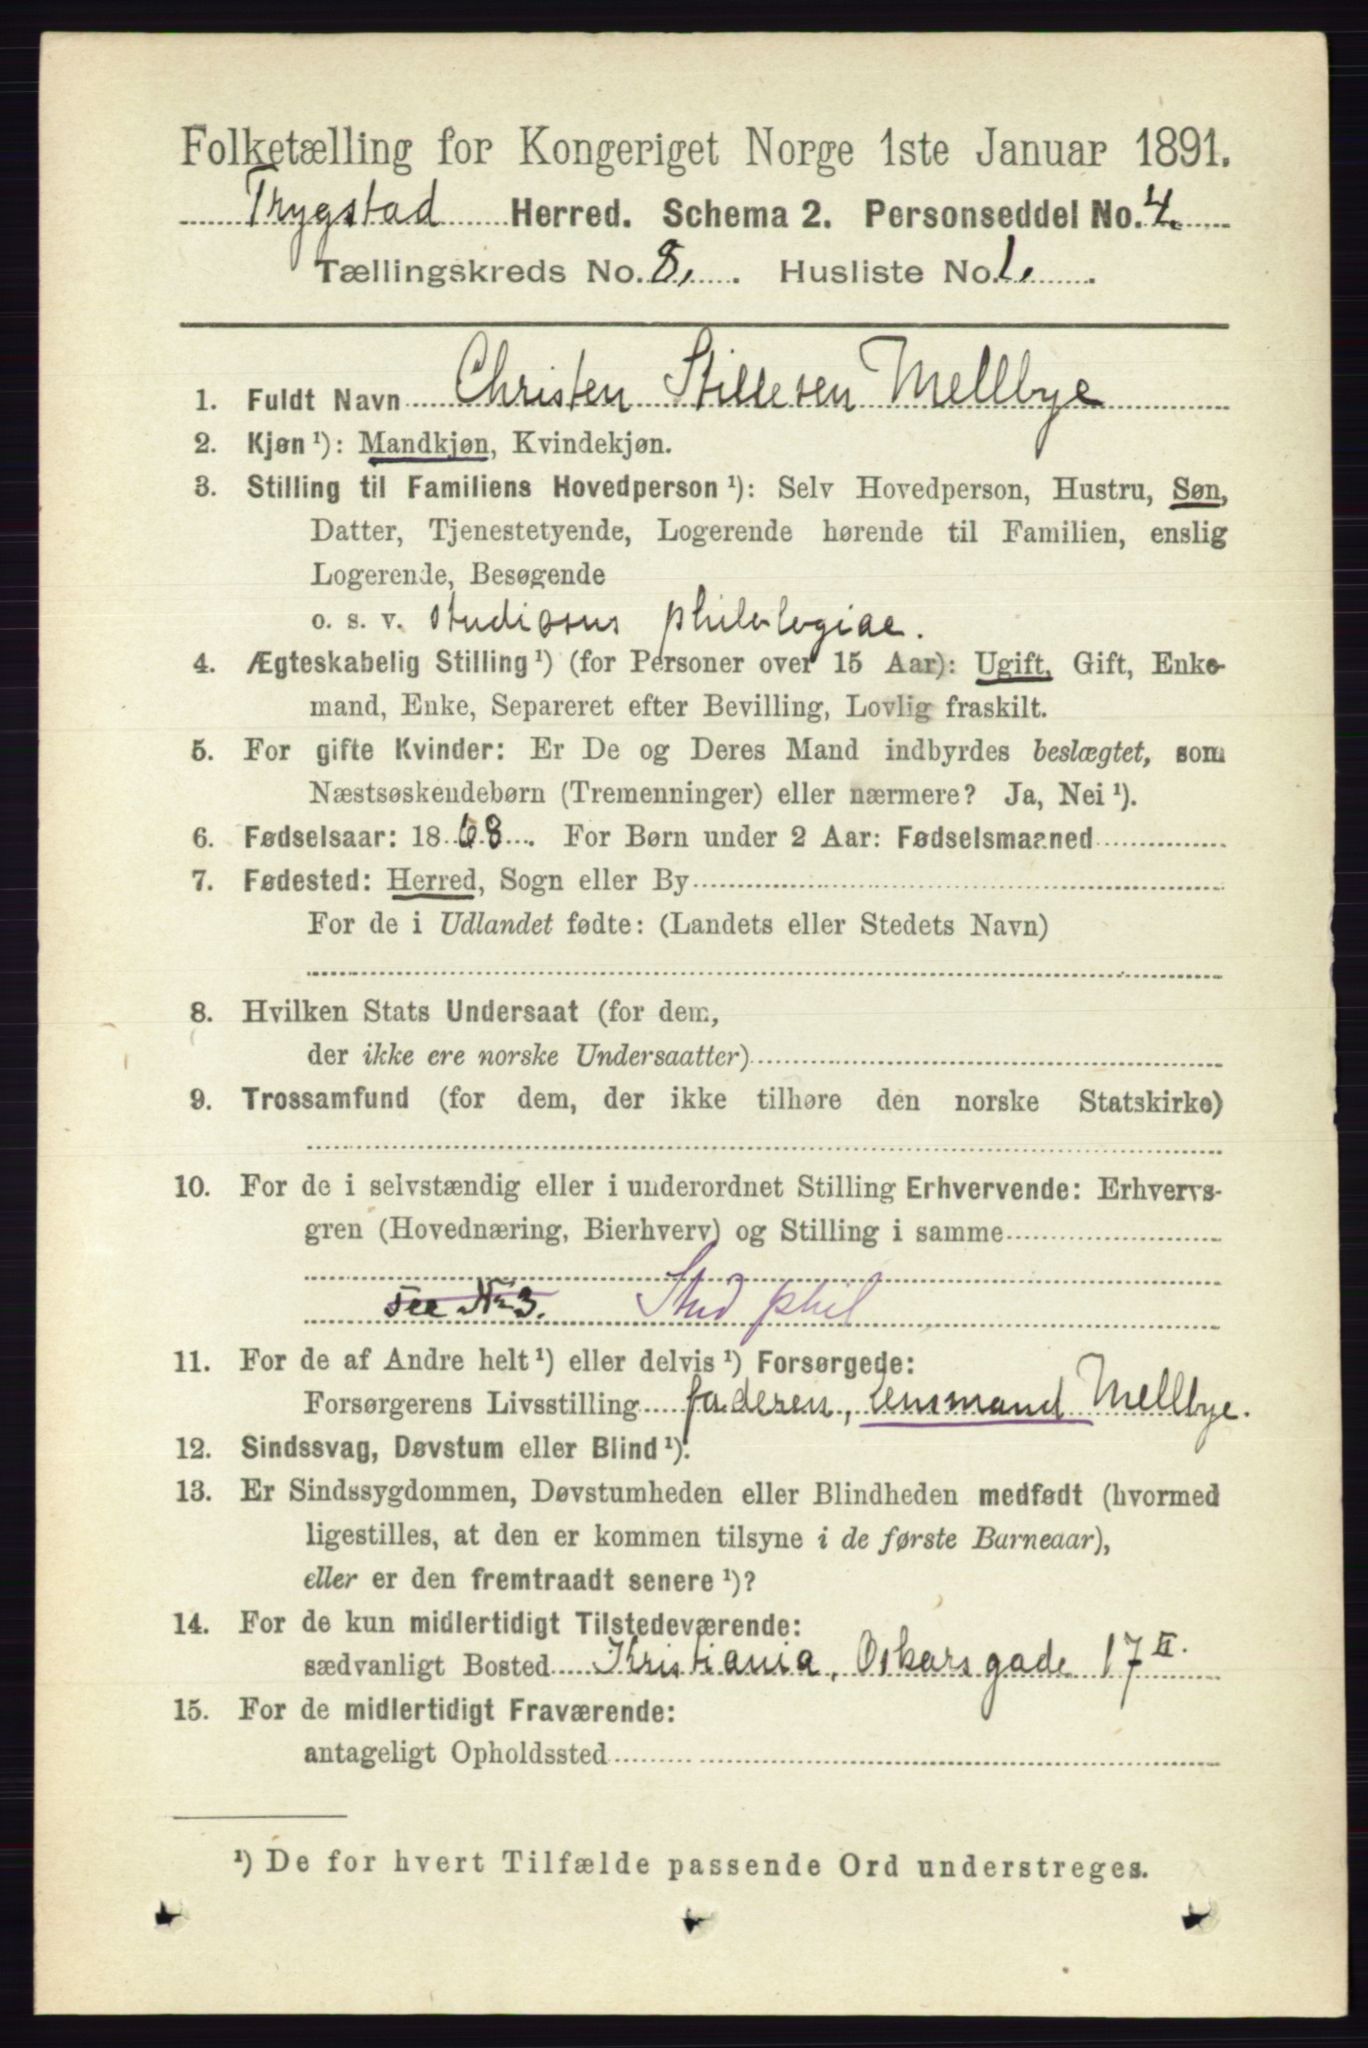 Folketælling for Kongeriget Norge 1ste Januar 1891.
Trygstad Herred. Schema 2. Personseddel No. 4.
Tællingskreds No. 8. Husliste No. 1.
1. Fuldt Navn Christen Stillesen Mellbye
2. Kjøn ¹): Mandkjøn, Kvindekjøn.
3. Stilling til Familiens Hovedperson ¹): Selv Hovedperson, Hustru, Søn,
Datter, Tjenestetyende, Logerende hørende til Familien, enslig
Logerende, Besøgende
o. s. v. studiosus philologiae.
4. Ægteskabelig Stilling ¹) (for Personer over 15 Aar): Ugift, Gift, Enke-
mand, Enke, Separeret efter Bevilling, Lovlig fraskilt.
5. For gifte Kvinder: Er De og Deres Mand indbyrdes beslægtet, som
Næstsøskendebørn (Tremenninger) eller nærmere? Ja, Nei ¹).
6. Fødselsaar: 1868. For Børn under 2 Aar: Fødselsmaaned
7. Fødested: Herred, Sogn eller By
For de i Udlandet fødte: (Landets eller Stedets Navn)
8. Hvilken Stats Undersaat (for dem,
der ikke ere norske Undersaatter)
9. Trossamfund (for dem, der ikke tilhøre den norske Statskirke)
10. For de i selvstændig eller i underordnet Stilling Erhvervende: Erhvervs-
gren (Hovednæring, Bierhverv) og Stilling i samme
see No 3. Stud phil
11. For de af Andre helt ¹) eller delvis ¹) Forsørgede:
Forsørgerens Livsstilling faderen, lensmand Mellbye.
12. Sindssvag, Døvstum eller Blind ¹).
13. Er Sindssygdommen, Døvstumheden eller Blindheden medfødt (hvormed
ligestilles, at den er kommen tilsyne i de første Barneaar),
eller er den fremtraadt senere ¹)?
14. For de kun midlertidigt Tilstedeværende:
sædvanligt Bosted Kristiania, Oskarsgade 17 II.
15. For de midlertidigt Fraværende:
antageligt Opholdssted
¹) De for hvert Tilfælde passende Ord understreges.